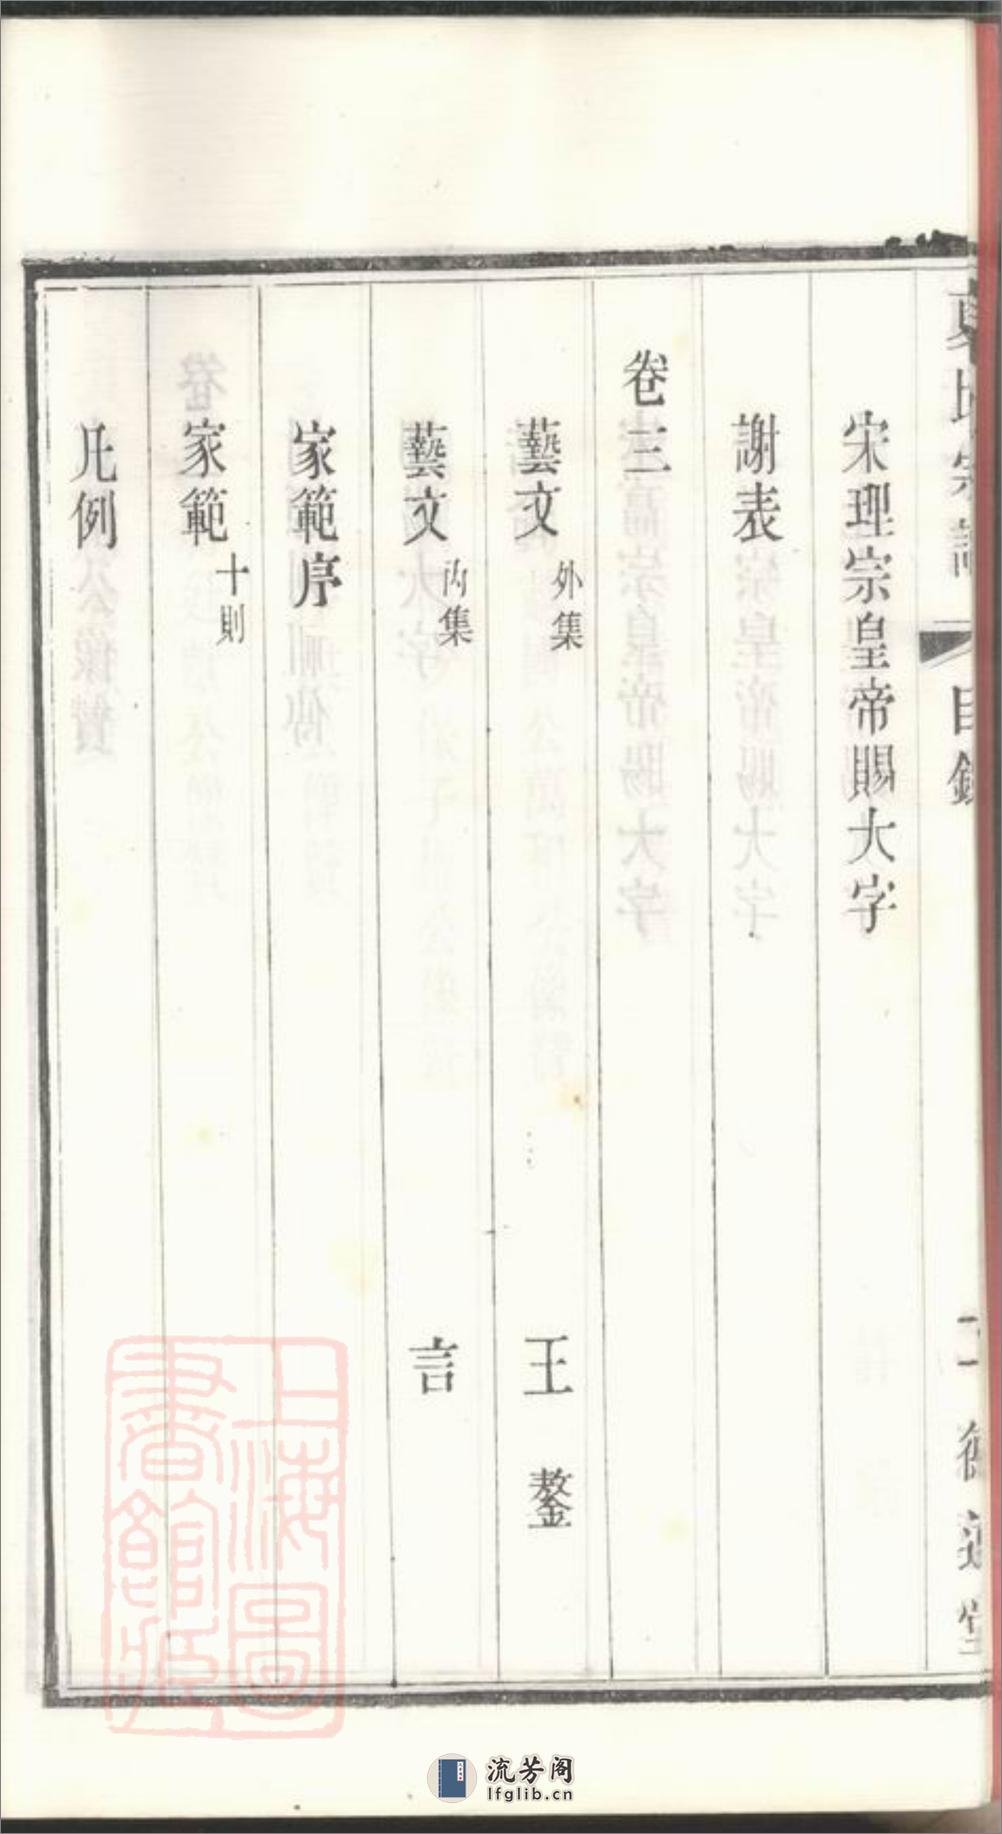 目錄
宋理宗皇帝賜大字
謝表
卷三
藝文 外集 王 鏊
藝文 內集 言
家範序
家範 十則
凡例
上海圖書館藏
流芳阁
lfglib.cn